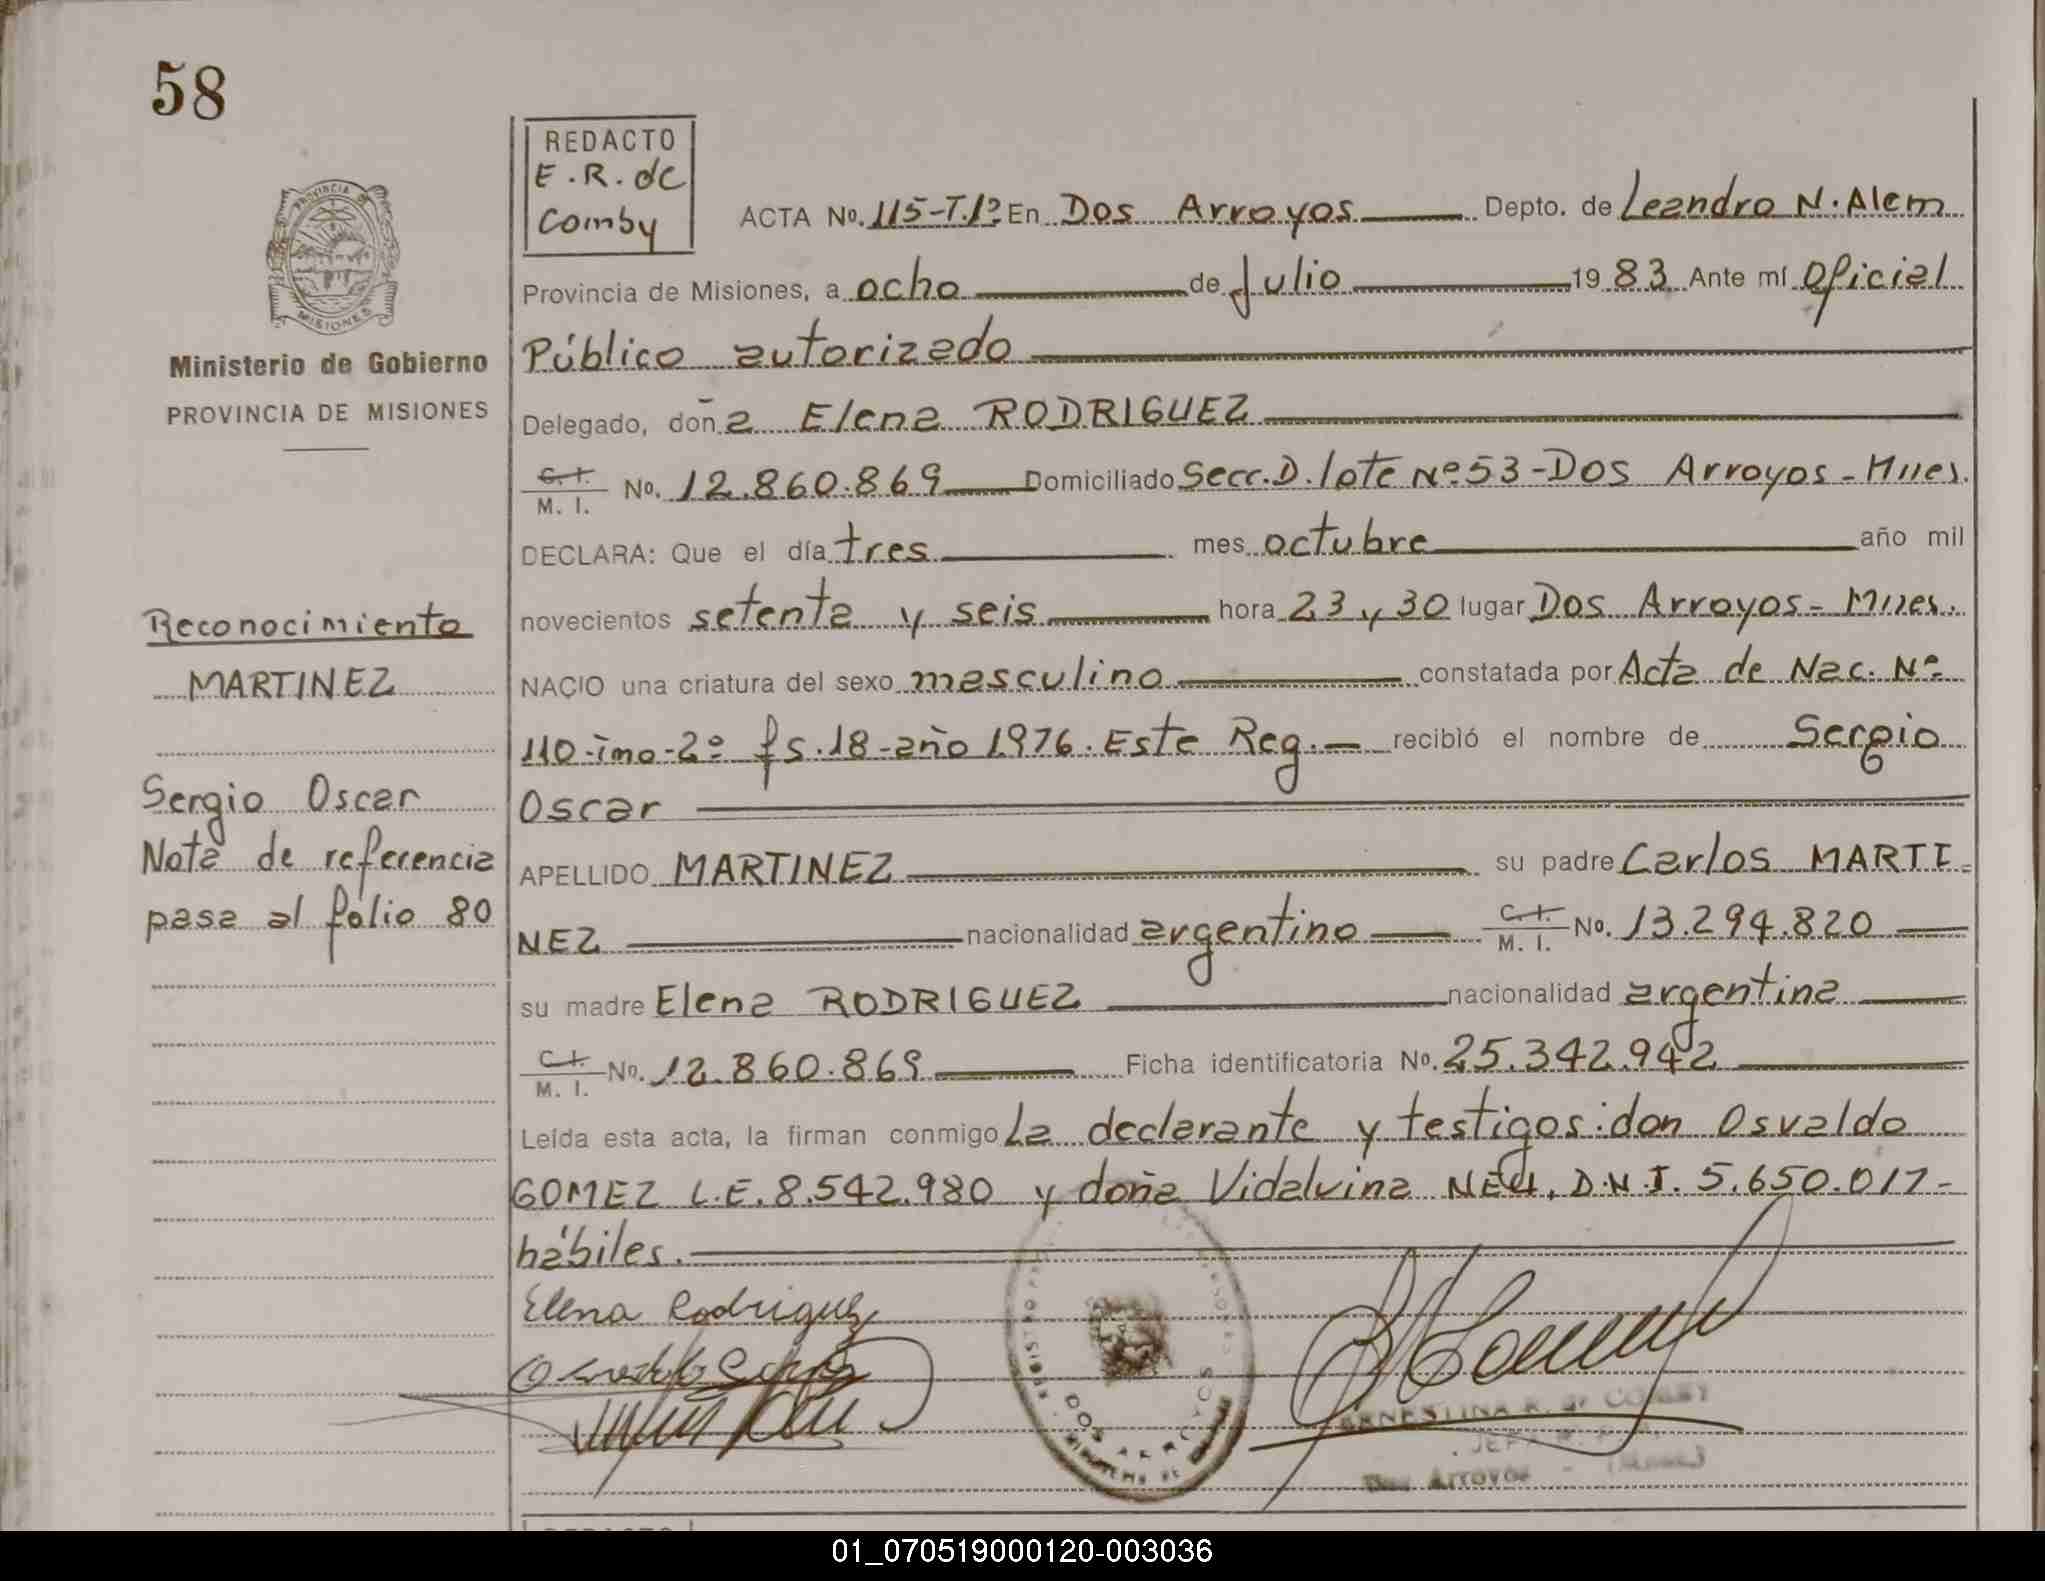 58
REDACTO
E.R. de
Comby
PROVINCIA DE
MISIONES
Ministerio de Gobierno
PROVINCIA DE MISIONES
Reconocimiento
MARTINEZ
Sergio Oscar
Nota de referencia
pasa al fólio 80
ACTA No. 115-T.1º En Dos Arroyos Depto. de Leandro N. Alem
Provincia de Misiones, a ocho de Julio 19 83 Ante mí Oficial
Público autorizado
Delegado, doña Elena RODRIGUEZ
C. I.
M. I. No. 12.860.869 Domiciliado Secc. D. lote Nº 53 - Dos Arroyos - Mnes.
DECLARA: Que el día tres mes octubre año mil
novecientos setenta y seis hora 23 y 30 lugar Dos Arroyos - Mnes.
NACIO una criatura del sexo masculino constatada por Acta de Nac. Nº
110-imo-2º fs. 18 - año 1976. Este Reg. recibió el nombre de Sergio
Oscar
APELLIDO MARTINEZ su padre Carlos MARTI
NEZ nacionalidad argentino C. I.
M. I. No. 13.294.820
su madre Elena RODRIGUEZ nacionalidad argentina
C. I.
M. I. No. 12.860.869 Ficha identificatoria No. 25.342.942
Leída esta acta, la firman conmigo La declarante y testigos: don Osvaldo
GOMEZ L.E. 8.542.980 y doña Vidalvina NEU, D.N.I. 5.650.017-
hábiles.
Elena Rodriguez
DOS ARROYOS
ERNESTINA R. de COMBY
Dos Arroyos -
01_070519000120-003036